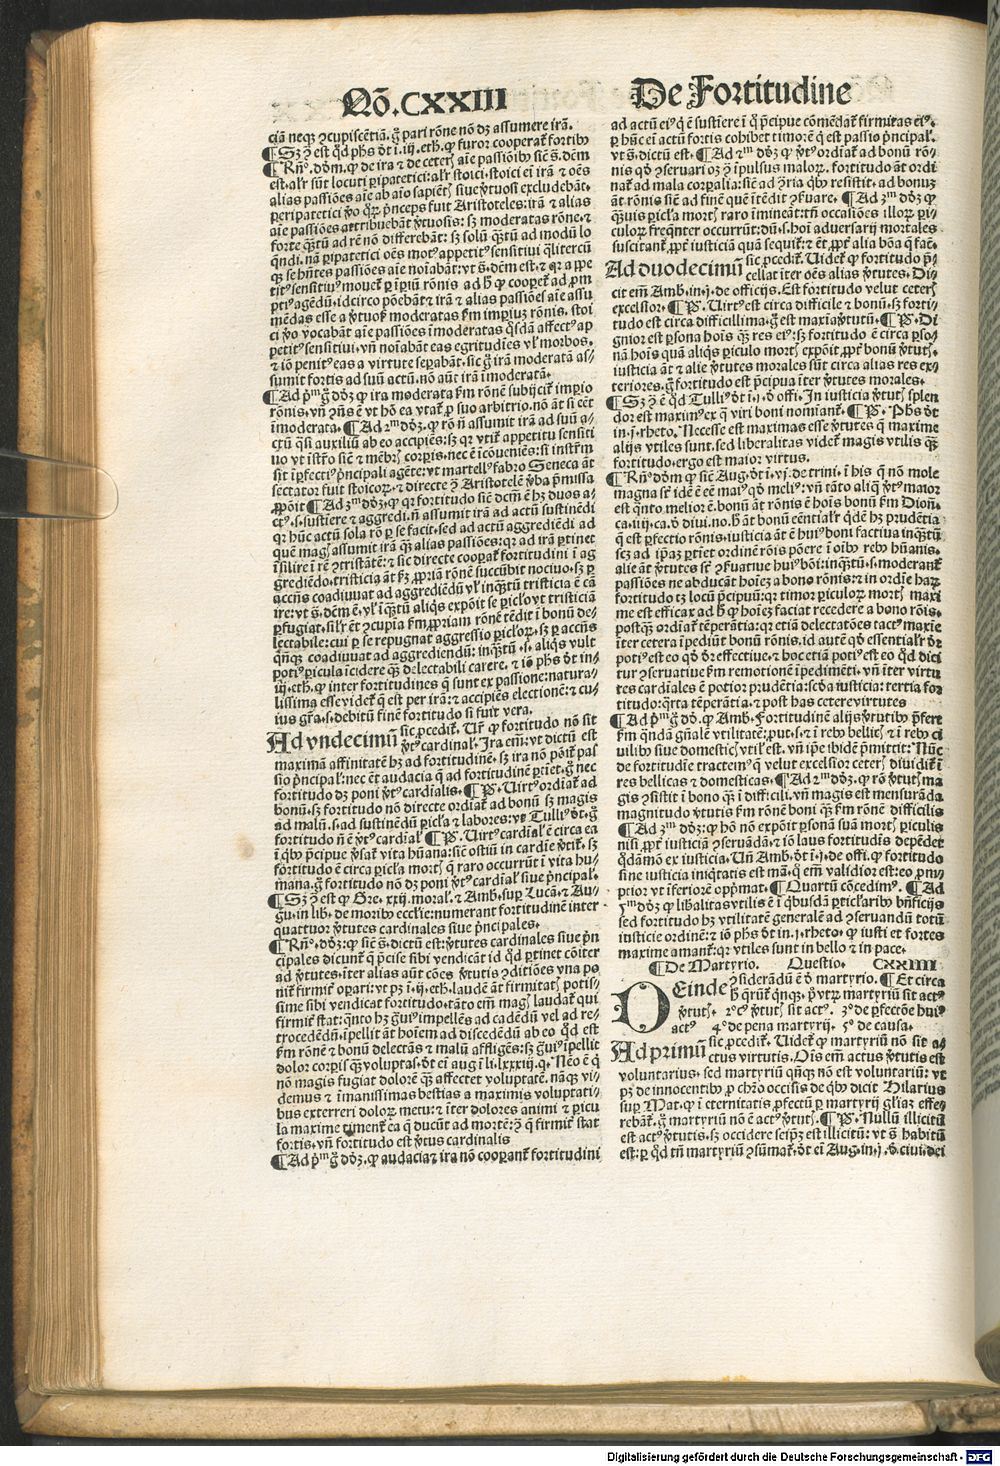 Qō. CXXIII
De Fortitudine
ciā neqꝫ ꝯcupiscētiā. g̊ pari rōne nō dꝫ assumere irā.
¶ Sꝫ ꝯ̄ est qd̄ phs d̄t ī. iij. eth. ꝙ furor cooperat̄ fortibꝰ
¶ Rn̄°. dōm. ꝙ de ira ⁊ de ceteris aīe passiōibꝰ sic̄ s̄. dēm
est. alr̄ sūt locuti ꝑipatetici: alr̄ stoici. stoici eī irā ⁊ oēs
alias passiōes aīe ab aīo sapiētis siue ꝟtuosi excludebāt.
ꝑeripatetici ꝟo quoꝝ prīceps fuit Aristoteles: irā ⁊ alias
aīe passiōes attribuebāt ꝟtuosis: sꝫ moderatas rōne. ⁊
forte qꝫtū ad rē nō differebāt: sꝫ solū qꝫtū ad modū lo
quēdi. nā ꝑipatetici oēs motꝰ appetitꝰ sensitiui qlitercū
qꝫ se hn̄tes passiōes aīe noīabāt: vt s̄. dēm est. ⁊ qr appe
titꝰ sensitiuꝰ mouet̄ ꝑ īperiū rōnis ad h̄ ꝙ cooperet̄ ad prom
ptiꝰ agēdū. idcirco ponebāt ⁊ irā ⁊ alias passiōes aīe assu
mēdas esse a ꝟtuosis moderatas fm imperiuꝫ rōnis. stoi
ci ꝟo vocabāt aīe passiōes īmoderatas quosdā affectꝰ ap
petitꝰ sensitiui. vn̄ noīabāt eas egritudīes vl̓ morbos.
⁊ iō penitꝰ eas a virtute seꝑabāt. sic g̊ irā moderatā as/
sumit fortis ad suū actū. nō aūt irā īmoderatā.
¶ Ad pm̄ g̊ dōꝫ ꝙ ira moderata fm rōnē subijcit̄ imꝑio
rōnis. vn̄ ꝯn̄s ē vt hō ea vtat̄ ꝓ suo arbitrio. nō āt si eēt
īmoderata. ¶ Ad 2m dōꝫ. ꝙ rō nō assumit irā ad suū a/
ctū qsi auxiliū ab eo accipiēs: sꝫ qr vtit̄ appetitu sensiti
uo vt īstr̄o sic̄ ⁊ mēbris corꝑis. nec ē īcōueniēs: si instr̄m
sit īꝑfectiꝰ prīncipali agēte: vt martellꝰ fabro Seneca āt
sectator fuit stoicoꝝ. ⁊ directe ꝯ̄ Aristotelē ꝟba p̄missa
ꝓpōit ¶ Ad 3m dōꝫ. ꝙ qr fortitudo sic̄ dcm̄ ē hꝫ duos a/
ctꝰ. s. sustiere ⁊ aggredi. nō assumit irā ad actū sustinēdi
qr hūc actū sola rō ꝑ se facit. sed ad actū aggrediēdi ad
quē magis assumit irā qꝫ alias passiōes: qr ad irā ꝑtinet
īsilire ī rē ꝯtristātē: ⁊ sic directe cooꝑat̄ fortitudini ī ag
grediēdo. tristicia āt fm ꝓpriā rōnē succūbit nociuo. sꝫ ꝑ
accn̄s coadiuuat ad aggrediēdū vl̓ īqꝫtū tristicia ē cā
ire: vt s̄. dēm ē. vl̓ īqꝫtū aliqs expōit se ꝑiclo vt tristiciā
ꝑfugiat. sil̓r ēt ꝯcupīa fm ꝓpriam rōnē tēdit ī bonū de/
lectabile: cui ꝑ se repugnat aggressio ꝑicl̓oꝝ. sꝫ ꝑ accn̄s
qn̄qꝫ coadiuuat ad aggrediendū: īqꝫtū. s. aliqs vult
potiꝰ ꝑicula īcidere qꝫ delectabili carere. ⁊ iō phs d̄t in/
iij. eth. ꝙ inter fortitudines q sunt ex passione: natura/
lissima esse videt̄ q est per irā: ⁊ accipiēs electionē: ⁊ cu/
ius gr̄a. s. debitū finē fortitudo si fuit vera.
Ad vndecimū sic ꝓcedit̄. Ur̄ ꝙ fortitudo nō sit
ꝟtꝰ cardinal̓. Ira em̄: vt dictū est
maximā affinitatē hꝫ ad fortitudinē. sꝫ ira nō pōit̄ pas
sio prīcipal̓: nec ēt audacia q ad fortitudinē ꝑtīet. g̊ nec
fortitudo dꝫ poni ꝟtꝰ cardīalis. ¶ Pꝫ. Uirtꝰ ordīat̄ ad
bonū. sꝫ fortitudo nō directe ordīat̄ ad bonū sꝫ magis
ad malū. s. ad sustinēdū ꝑicl̓a ⁊ labores: vt Tulliꝰ d̄t. g̊
fortitudo nō ē ꝟtꝰ cardīal̓ ¶ Pꝫ. Uirtꝰ cardīal̓ ē circa ea
ī qbꝰ prīcipue ꝟsat̄ vita hūana: sic̄ ostiū in cardīe ꝟtit̄. sꝫ
fortitudo ē circa ꝑicl̓a mortis q raro occurrūt ī vita hu/
mana. g̊ fortitudo nō dꝫ poni ꝟtꝰ cardīal̓ siue prīcipal̓.
¶ Sꝫ ꝯ̄ est ꝙ Gre. xxij. moral̓. ⁊ Amb. suꝑ Lucā. ⁊ Au/
gu. in lib. de moribꝰ eccl̓ie: numerant fortitudinē inter
quattuor ꝟtutes cardinales siue prīcipales.
¶ Rn̄°. dōꝫ: ꝙ sic̄ s̄. dictū est: ꝟtutes cardinales siue prī
cipales dicunt̄ q p̄cise sibi vendicāt id qd̄ ꝑtinet cōiter
ad ꝟtutes. īter alias aūt cōes ꝟtutis ꝯditiōes vna po
nit̄ firmit̄ oꝑari: vt pꝫ ī. ij. eth. laudē āt firmitatis potis/
sime sibi vendicat fortitudo. tāto em̄ magis laudat̄ qui
firmit̄ stat: quāto hꝫ grauiꝰ impellēs ad cadēdū vel ad re/
trocedēdū. īpellit āt hoīem ad discedēdū ab eo qd̄ est
fm rōnē ⁊ bonū delectās ⁊ malū affligēs: sꝫ grauiꝰ īpellit
dolor corꝑis qꝫ voluptas. d̄t eī aug̓ ī li. lxxxiij. q. Nēo ē q
nō magis fugiat dolorē qꝫ affectet voluptatē. nāqꝫ vi/
demus ⁊ īmanissimas bestias a maximis voluptati/
bus exterreri doloꝝ metu: ⁊ īter dolores animi ⁊ ꝑicu
la maxime timent̄ ea q ducūt ad mortē: ꝯ̄ q firmit̄ stat
fortis. vn̄ fortitudo est ꝟtus cardinalis
¶ Ad pm̄ g̊ dōꝫ. ꝙ audacia ⁊ ira nō cooꝑant̄ fortitudini
ad actū eiꝰ q ē sustiere ī q prīcipue cōmēdat̄ firmitas eiꝰ.
ꝑ hūc eī actū fortis cohibet timorē q est passio prīcipal̓.
vt s̄. dictū est. ¶ Ad 2m dōꝫ ꝙ ꝟtꝰ ordīat̄ ad bonū rō/
nis qd̄ ꝯseruari oꝫ ꝯ̄ īpulsus maloꝝ. fortitudo āt ordi
nat̄ ad mala corꝑalia: sic̄ ad ꝯ̄ria qbꝰ resistit. ad bonuꝫ
āt rōnis sic̄ ad finē quē ītēdit ꝯseruare. ¶ Ad 3m dōꝫ ꝙ
qꝫuis ꝑicl̓a mortis raro īmineāt: tn̄ occasiōes illoꝝ ꝑi/
culoꝝ freqn̄ter occurrūt: dū. s. hoī aduersarij mortales
suscitant̄. ꝓpt̄ iusticiā quā sequit̄: ⁊ ēt. ꝓpt̄ alia bōa q facit.
Ad duodecimū sic ꝓcedit̄. Uidet̄ ꝙ fortitudo p̄/
cellat īter oēs alias ꝟtutes. Di/
cit em̄. Amb. in. j. de officijs. Est fortitudo velut ceteris
excelsior. ¶ Pꝫ. Uirtꝰ est circa difficile ⁊ bonū. sꝫ forti/
tudo est circa difficillima. g̊ est maxīa ꝟtutū. ¶ Pꝫ. Di
gnior est ꝑsona hoīs qꝫ res eiꝰ: sꝫ fortitudo ē circa ꝑso/
nā hoīs quā aliqs ꝑiculo mortis expōit. ꝓpt̄ bonū ꝟtutis.
iusticia āt ⁊ alie ꝟtutes morales sūt circa alias res ex/
teriores. g̊ fortitudo est prīcipua īter ꝟtutes morales.
¶ Sꝫ ꝯ̄ ē qd̄ Tulliꝰ d̄t ī. j. d̄ offi. In iusticia ꝟtutis splen
dor est maximꝰ ex q viri boni nomīant̄. ¶ Pꝫ. Phs d̄t
in. j. rheto. Necesse est maximas esse ꝟtutes q maxime
alijs vtiles sunt. sed liberalitas videt̄ magis vtilis qꝫ
fortitudo. ergo est maior virtus.
¶ Rn̄° dōm ꝙ sic̄ Aug. d̄t ī. vj. de trini. ī his q nō mole
magna sr̄ idē ē eē maiꝰ qd̄ meliꝰ: vn̄ tāto aliq ꝟtꝰ maior
est quāto melior ē. bonū āt rōnis ē hoīs bonū fm Dion̄.
ca. iiij. ca. d̄ diui. no. h̄ āt bonū eēntial̓r qdē hꝫ prudētia
q est ꝑfectio rōnis. iusticia āt ē huiꝰ boni factiua inqꝫtū
scꝫ ad ip̄az ꝑtiet ordinē rōis pōere ī oībꝰ rebꝰ hūanis.
alie āt ꝟtutes sr̄ ꝯseruatiue huiꝰ boī: inqꝫtū. s. moderant̄
passiōes ne abducāt hoīeꝫ a bono rōnis: ⁊ in ordīe haꝝ
fortitudo tꝫ locū prīcipuū: qr timor ꝑiculoꝝ mortis maxi
me est efficax ad h̄ ꝙ hoīeꝫ faciat recedere a bono rōis.
postqꝫ ordīat̄ tēꝑantia: qr etiā delectatōes tactꝰ maxīe
īter cetera īpediūt bonū rōnis. id autē qd̄ essential̓r dr̄
potiꝰ est eo qd̄ dr̄ effectiue. ⁊ hoc etiā potiꝰ est eo qd̄ dici
tur ꝯseruatiue fm remotionē īpedimēti. vn̄ īter virtu
tes cardīales ē potior prudētia: scd̄a iusticia: tertia for
titudo: quarta tēꝑātia. ⁊ post has cetere virtutes
¶ Ad pm̄ g̊ dō. ꝙ Amb. Fortitudinē alijs ꝟtutibꝰ p̄fert
fm quādā gn̄alē vtilitatē: ꝓut. s. ⁊ ī rebꝰ bellicis ⁊ ī rebꝰ ci
uilibꝰ siue domesticis vtil̓ est. vn̄ ip̄e ibidē p̄mittit: Nūc
de fortitudīe tractemꝰ q velut excelsior ceteris diuidit̄ ī
res bellicas ⁊ domesticas. ¶ Ad 2m dōꝫ. ꝙ rō ꝟtutis ma
gis ꝯsistit ī bono qꝫ ī difficili. vn̄ magis est mensurāda
magnitudo ꝟtutis fm rōnē boni qꝫ fm rōnē difficilis
¶ Ad 3m dōꝫ: ꝙ hō nō expōit ꝑsonā suā mortis ꝑiculis
nisi. ꝓpt̄ iusticiā ꝯseruandā. ⁊ iō laus fortitudīs depēdet
quodāmō ex iusticia. Un̄ Amb. d̄t ī. j. de offi. ꝙ fortitudo
sine iusticia iniqtatis est mā. q em̄ validior est: eo prom/
ptior vt īferiorē opprimat. ¶ Quartū cōcedimꝰ. ¶ Ad
5m dōꝫ ꝙ libalitas vtilis ē ī qbusdā ꝑticlaribꝰ bn̄ficijs
sed fortitudo hꝫ vtilitatē generalē ad ꝯseruandū totū
iusticie ordinē: ⁊ iō phs d̄t in. j. rheto. ꝙ iusti et fortes
maxime amant̄: qr vtiles sunt in bello ⁊ in pace.
¶ De Martyrio. Questio. CXXIIII
DEinde ꝯsiderādū ē d̄ martyrio. ¶ Et circa
h̄ qrūt̄ qnqꝫ. pꝰ vtꝝ martyriū sit actꝰ
ꝟtutis. 2° cꝰ ꝟtutis sit actꝰ. 3° de ꝑfectōne huiꝰ
actꝰ 4° de pena martyrij. 5° de causa.
Ad primū sic ꝓcedit̄. Uidet̄ ꝙ martyriū nō sit a/
ctus virtutis. Oīs em̄ actus ꝟtutis est
voluntarius. sed martyriū qn̄qꝫ nō est voluntariū: vt
pꝫ de innocentibꝰ ꝓ chr̄o occisis de qbꝰ dicit Hilarius
suꝑ Mat. ꝙ ī eternitatis ꝓfectū ꝑ martyrij gl̓iaꝫ effe/
rebāt̄. g̊ martyriū nō ē actꝰ ꝟtutis. ¶ Pꝫ. Nullū illicitū
est actꝰ ꝟtutis. sꝫ occidere seip̄ꝫ est illicitū: vt s̄ habitū
est: ꝑ qd̄ tn̄ martyriū ꝯsūmat̄. d̄t eī Aug. in. j. d̄ ciui. dei
Digitalisierung gefördert durch die Deutsche Forschungsgemeinschaft - DFG